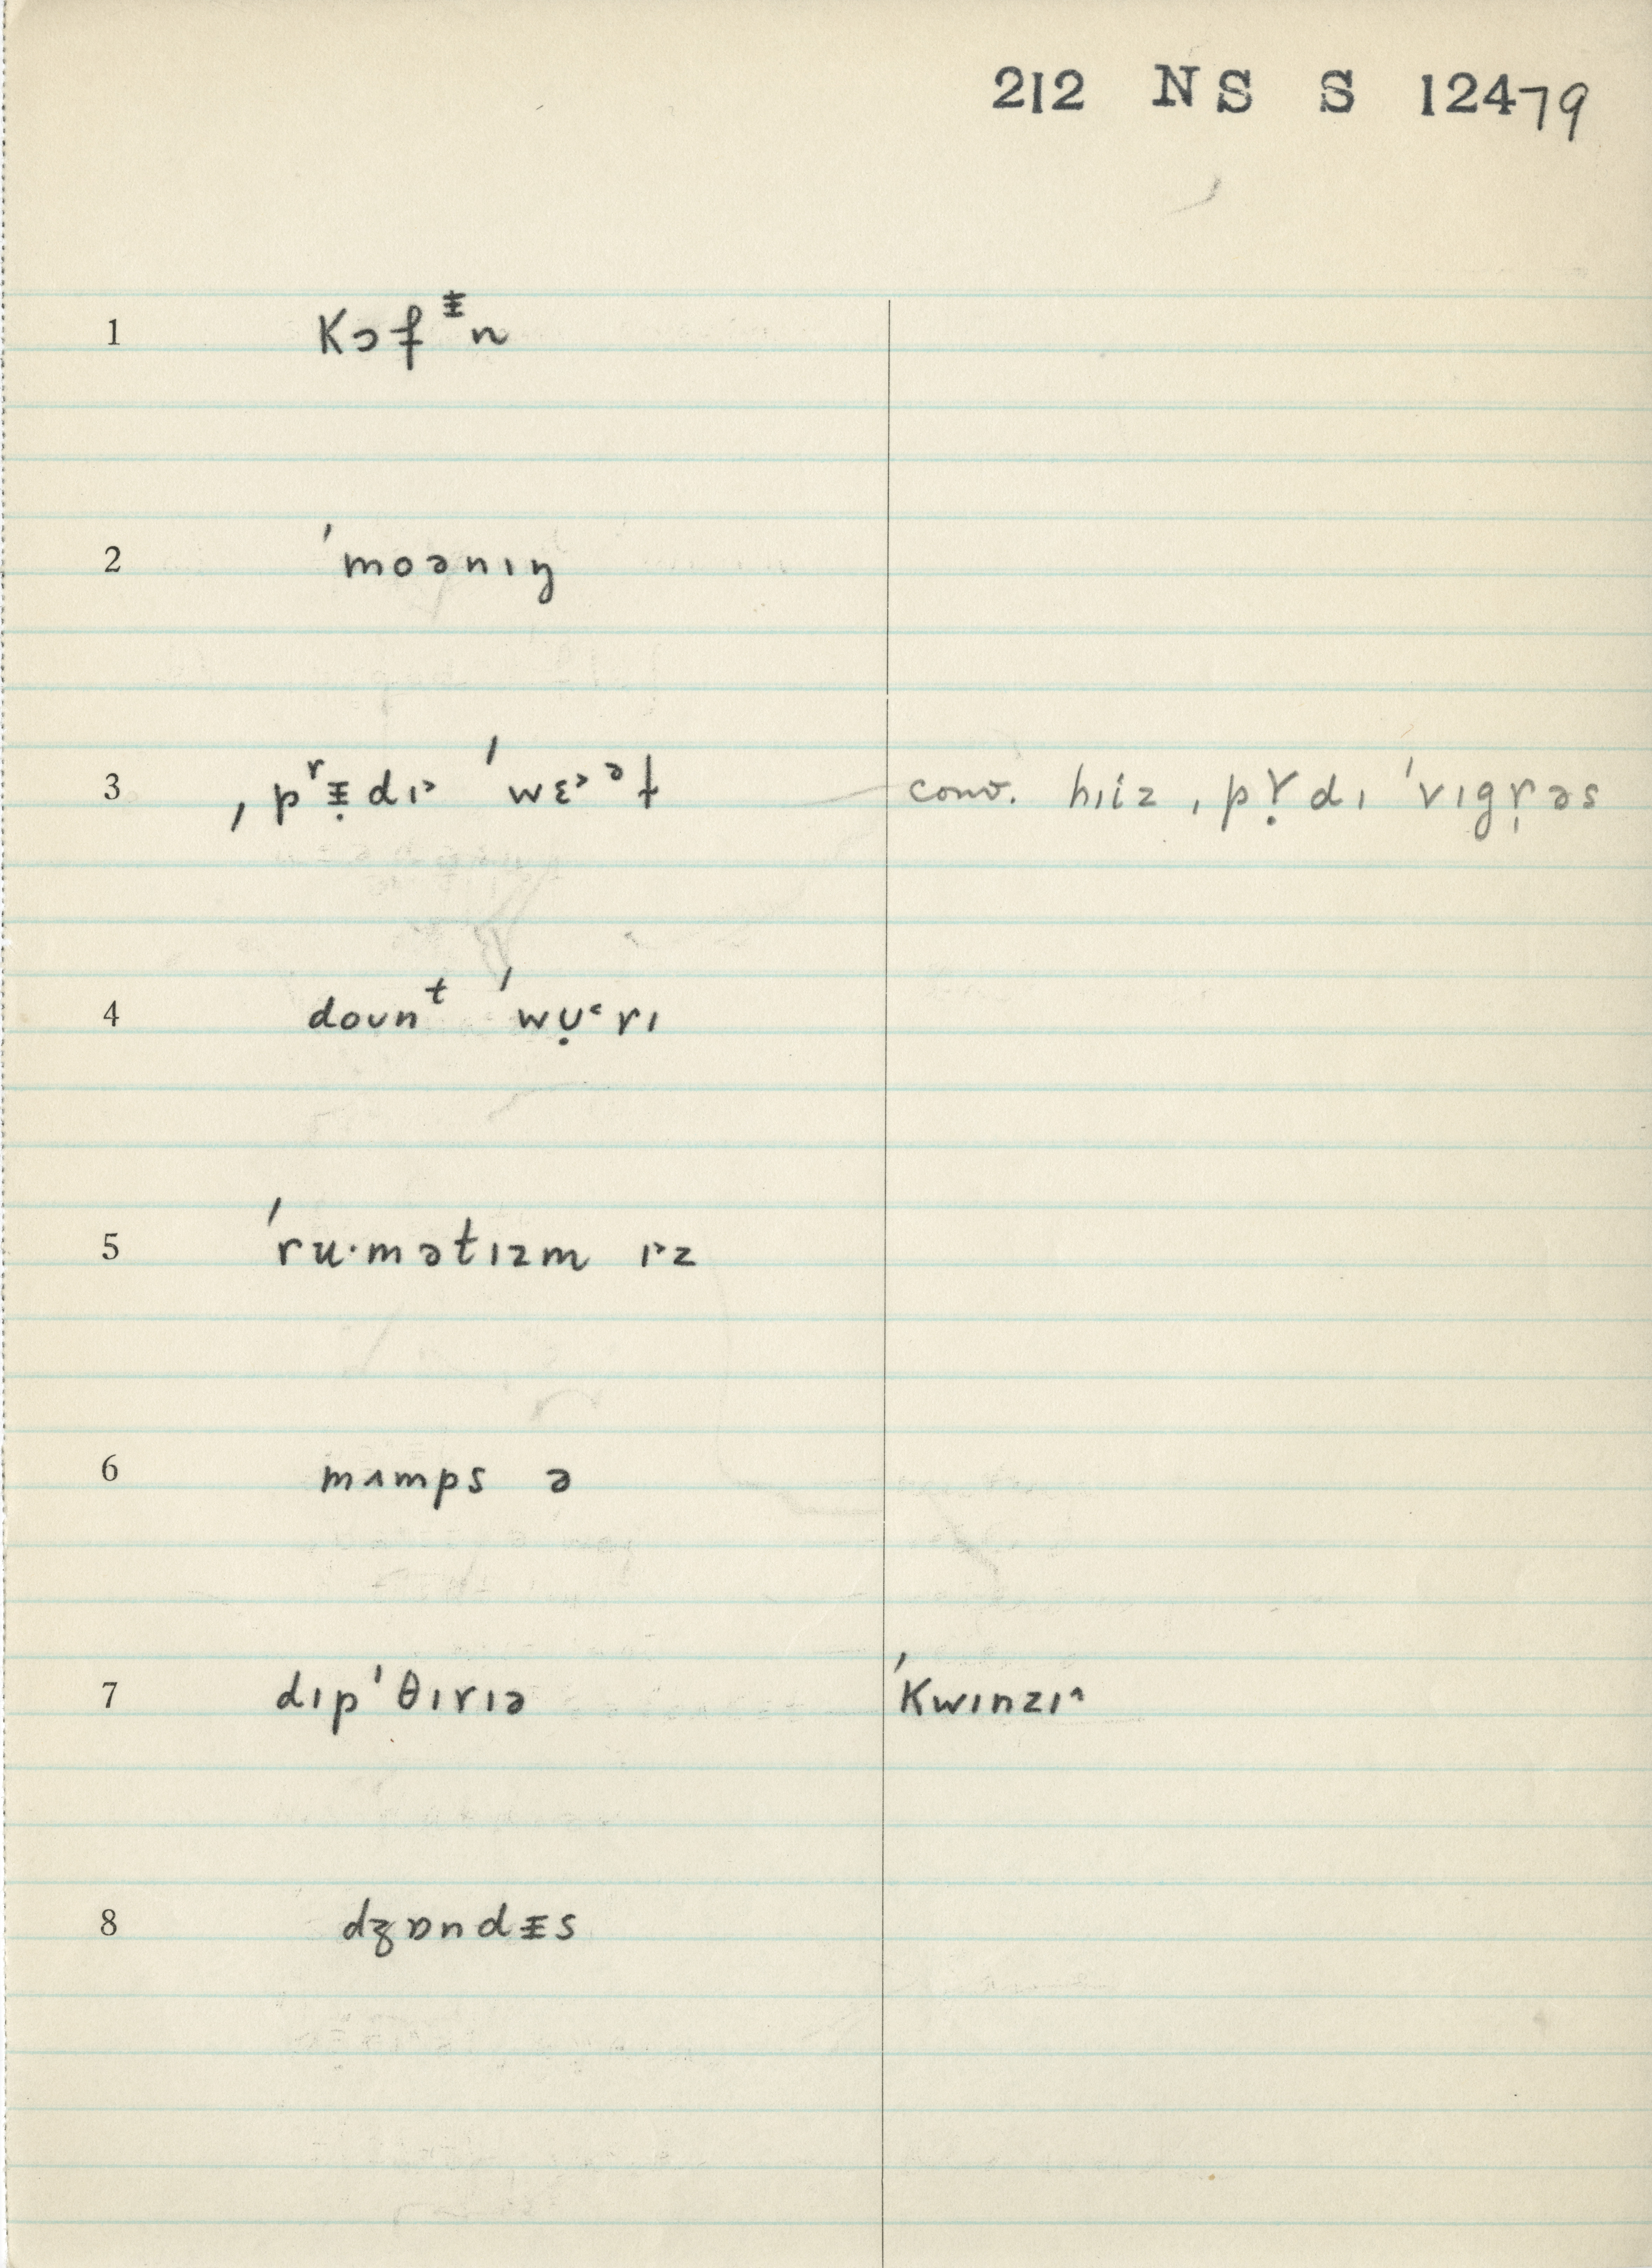 212 NS S 12479
1 kɔfᵻn
2 ˈmoənɪŋ
3 ˌpʳᵻ̣dɪ˃ ˈwɛ˃ᵊɫ conv. hɪiz ˌpɤ̣dɪ ˈvɪgr̩əs
4 doʊnᵗ ˈwʊ̣˂rɪ
5 ˈru·mətɪzm ɪ˃z
6 mʌmps ə
7 dɪpˈθɪrɪə ˈkwɪnzɪ˄
8 dʒɒndᵻs